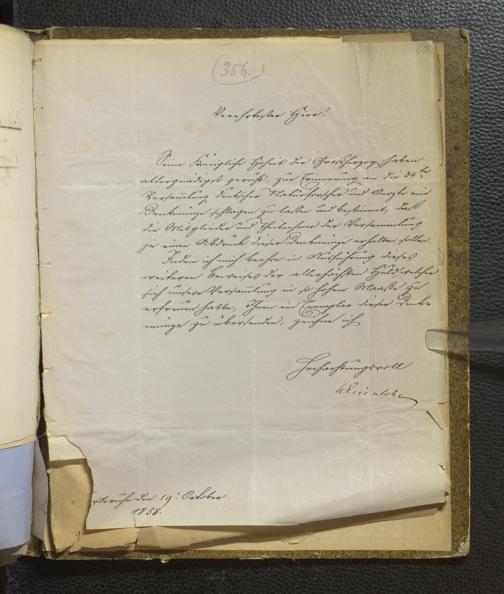 356.
Verehrtester Herr!
Seine Königliche Hoheit der Großherzog haben
allergnädigst geruht, zur Erinnerung an die 34te
Versammlung deutscher Naturforscher und Aerzte eine
Denkmünze schlagen zu lassen und bestimmt, daß
die Mitglieder und Theilnehmer der Versammlung
je einen Abdruck dieser Denkmünze erhalten sollen.
Indem ich mich beehre in Ausführung dieses
weiteren Beweises der allerhöchsten Huld, welcher
sich unsere Versammlung in so hohem Maaße zu
erfreuen hatte, Ihnen ein Exemplar dieser Denk-
münze zu übersenden, zeichne ich
Hochachtungsvoll
ruhe den 19. October
1858.